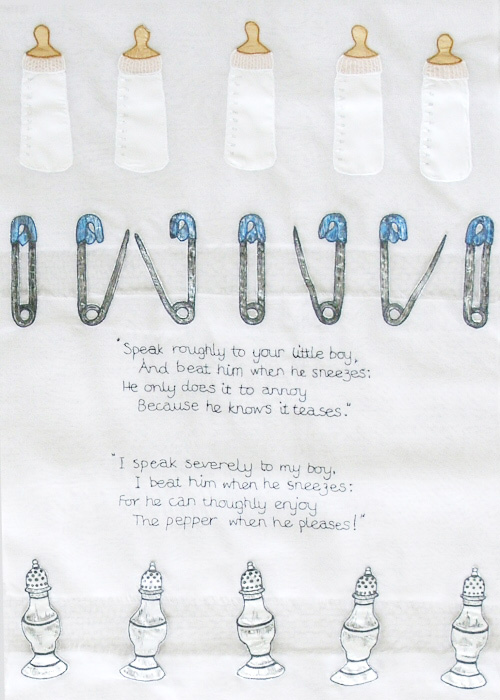 "Speak roughly to your little boy,
And beat him when he sneezes:
He only does it to annoy
Because he knows it teases."
"I speak severely to my boy,
I beat him when he sneezes:
For he can thoughtly enjoy
The pepper when he pleases!"